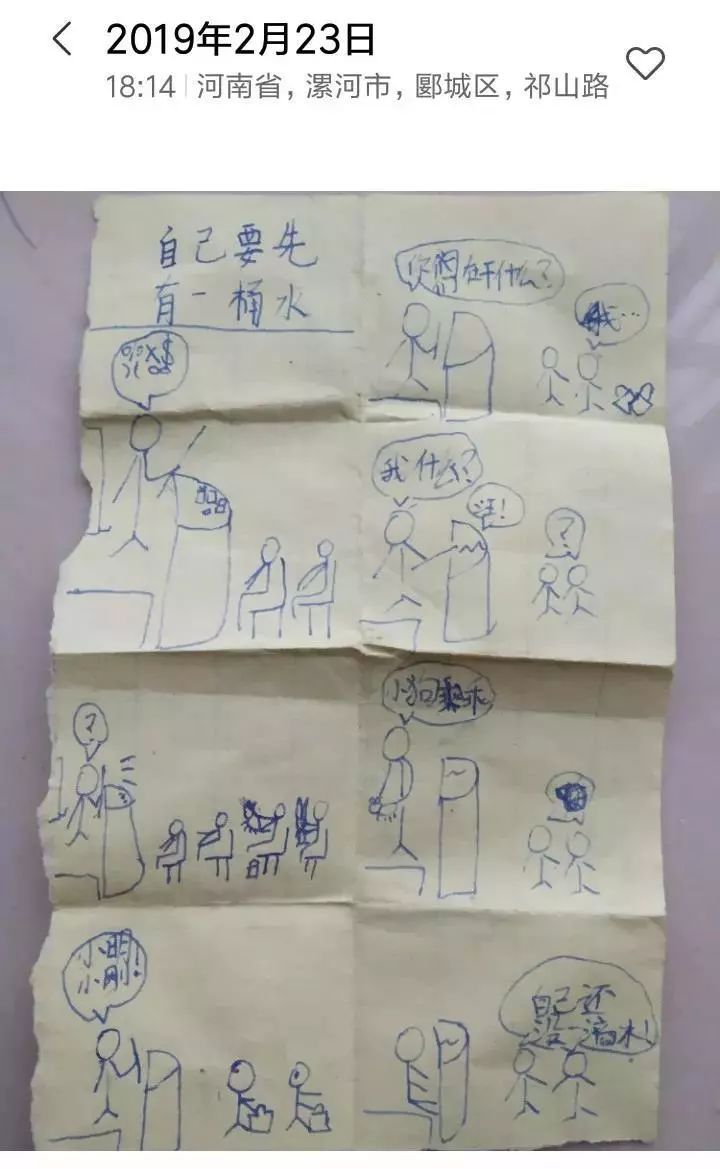 2019年2月23日
18:14 | 河南省, 漯河市, 郾城区, 祁山路
自己要先
有一桶水
?
小明!
小刚!
你们在干什么?
我…
我什么?
汪!
?
小狗
自己还
没一滴水!